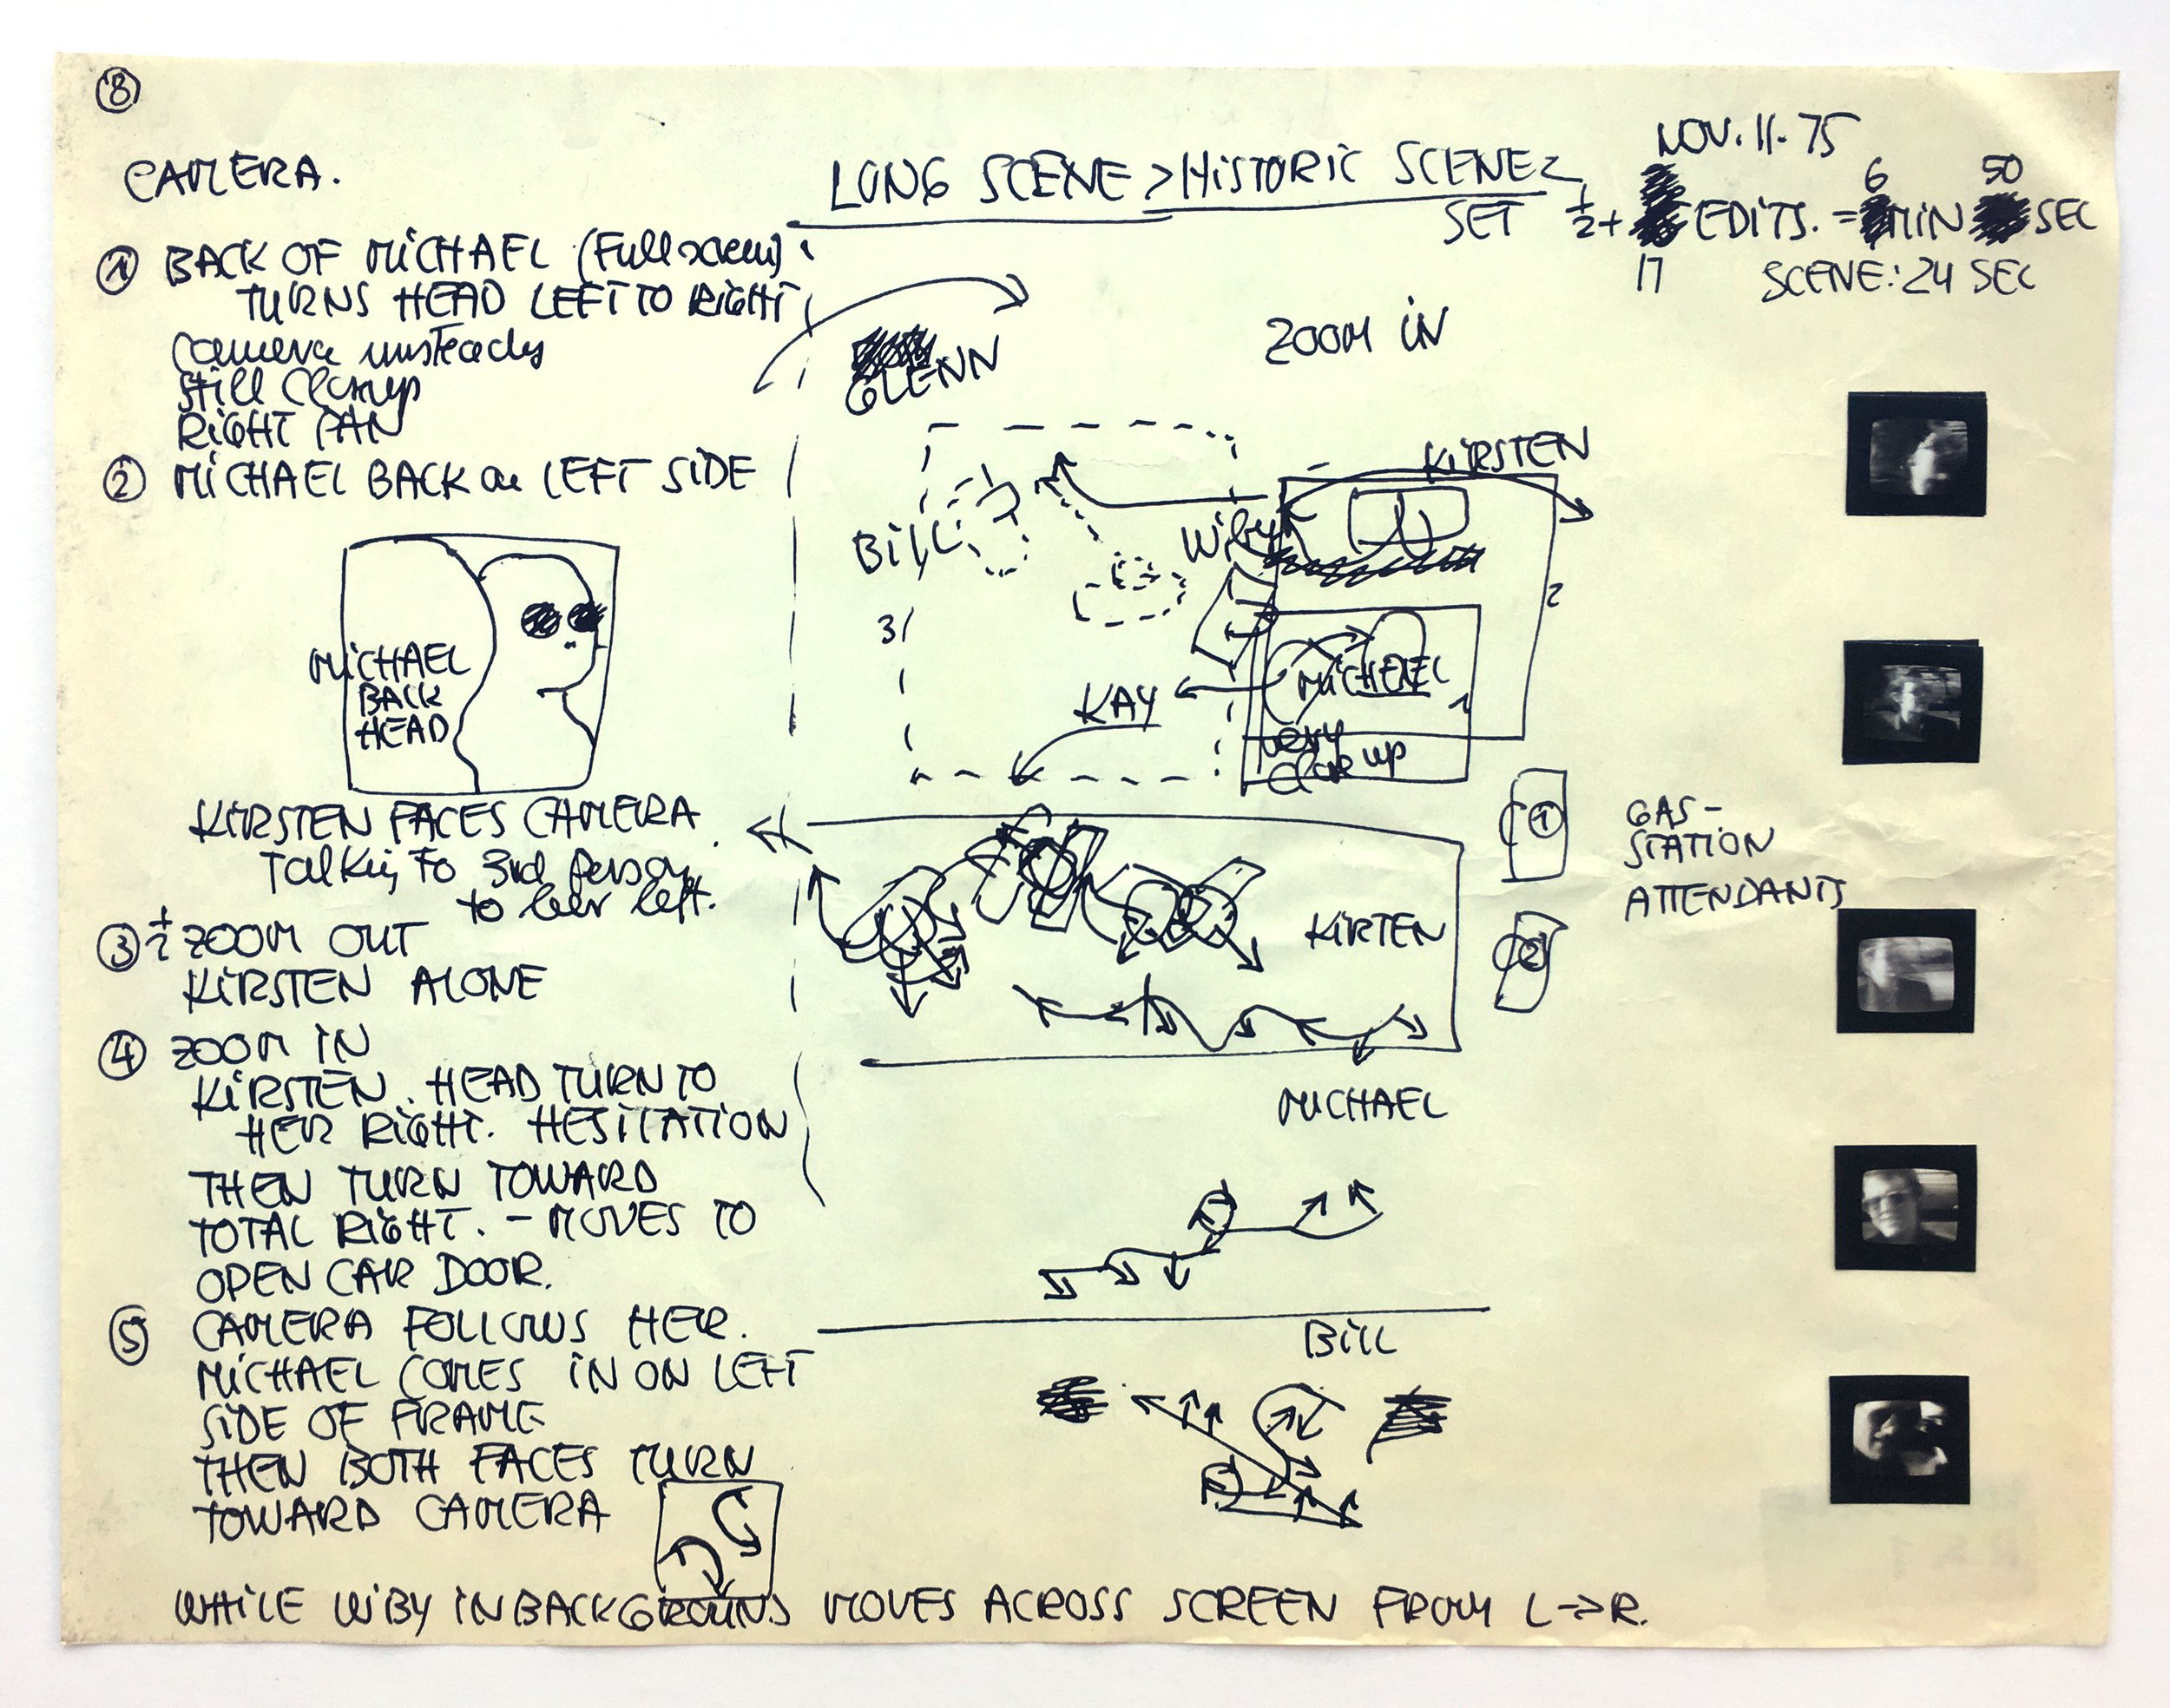 8
NOV. 11. 75
CAMERA.
LONG SCENE > HISTORIC SCENE
SET ½ + 17 EDITS. = 6 MIN 50 SEC
SCENE: 24 SEC
① BACK OF MICHAEL (Full screen)
TURNS HEAD LEFT TO RIGHT
camera unsteady
still closeup
RIGHT PAN
② MICHAEL BACK on LEFT SIDE
MICHAEL
BACK
HEAD
KIRSTEN FACES CAMERA
Talking To 3rd Person
to her left.
③ ½ ZOOM OUT
KIRSTEN ALONE
④ ZOOM IN
KIRSTEN. HEAD TURN TO
HER RIGHT. HESITATION
THEN TURN TOWARD
TOTAL RIGHT. – MOVES TO
OPEN CAR DOOR.
⑤ CAMERA FOLLOWS HER.
MICHAEL COMES IN ON LEFT
SIDE OF FRAME
THEN BOTH FACES TURN
TOWARD CAMERA
WHILE WIBY IN BACKGROUND MOVES ACROSS SCREEN FROM L → R.
GLENN
ZOOM IN
KIRSTEN
BILL
Wiby
2
3
MICHAEL
1
KAY
very
close up
1
GAS-
STATION
ATTENDANTS
2
KIRTEN
MICHAEL
BILL